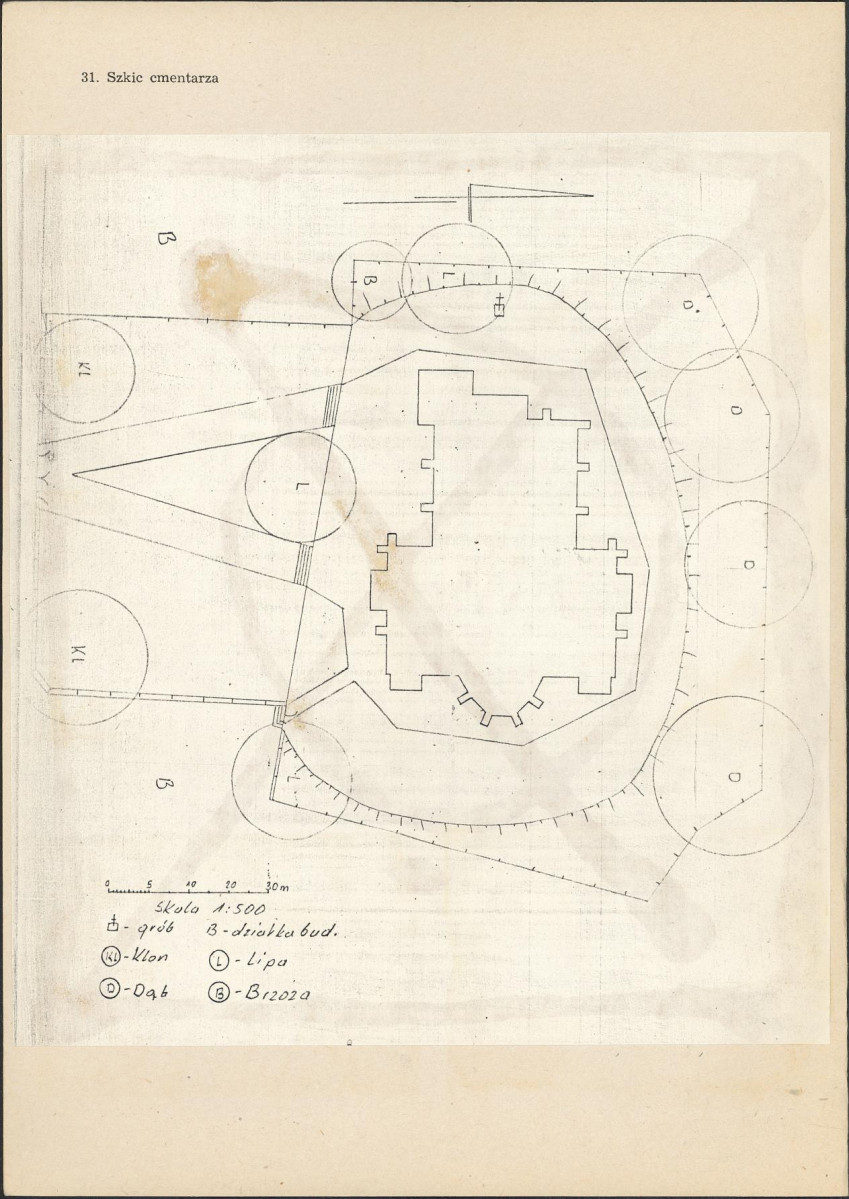 31. Szkic cmentarza
B
B L
D.
Kl
D
L
D
Kl
B
L
D
0 5 10 20 30m
Skala 1:500
- grób B - działka bud.
Kl - Klon L - Lipa
D - Dąb B - Brzoza